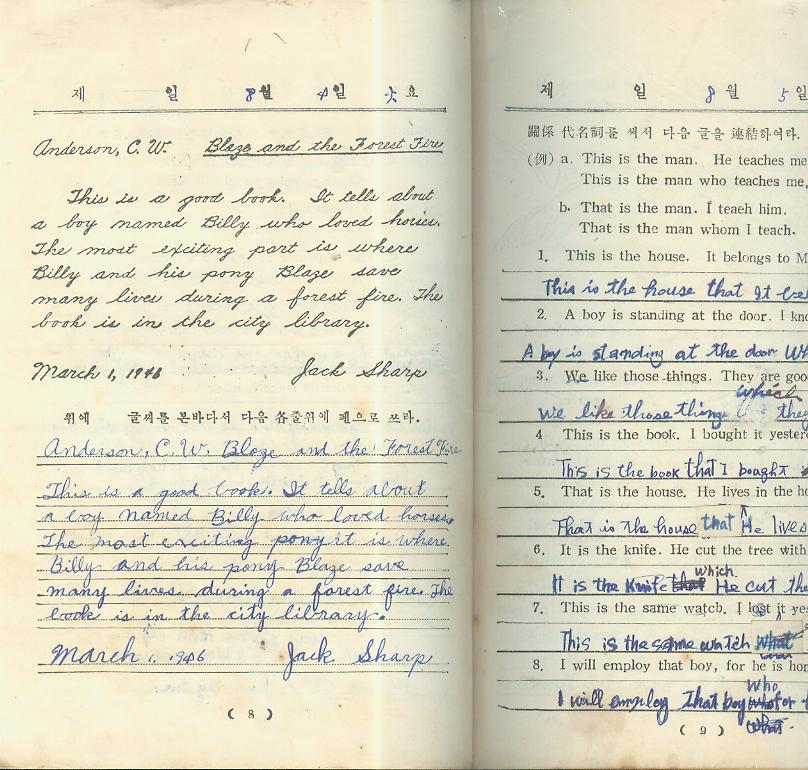 제 일 8월 4일 火요
Anderson, C. W. Blaze and the Forest Fire
This is a good book. It tells about
a boy named Billy who loved horses.
The most exciting part is where
Billy and his pony Blaze save
many lives during a forest fire. The
book is in the city library.
March 1, 1946 Jack Sharp
위에 글씨를 본바다서 다음 各줄위에 펜으로 쓰라.
Anderson, C. W. Blaze and the Forest Fire
This is a good book. It tells about
a boy named Billy who loved horses.
The most exciting pony it is where
Billy and his pony Blaze save
many lives during a forest fire. The
book is in the city library.
March 1, 1946 Jack Sharp
( 8 )
제 일 8월 5일
關係 代名詞를 써서 다음 글을 連結하여라.
(例) a. This is the man. He teaches me
This is the man who teaches me.
b. That is the man. I teaeh him.
That is the man whom I teach.
1. This is the house. It belongs to M
This is the house that It
2. A boy is standing at the door. I kno
A boy is standing at the door
3. We like those things. They are goo
which
We like those thing they
4 This is the book. I bought it yester
This is the book that I bought
5. That is the house. He lives in the ho
That is the house that He lives
6. It is the knife. He cut the tree with
which
It is the knife that He cut the
7. This is the same watch. I lost it yes
This is the same watch what
8. I will employ that boy, for he is hon
who
I will employ that boy for
what
( 9 )